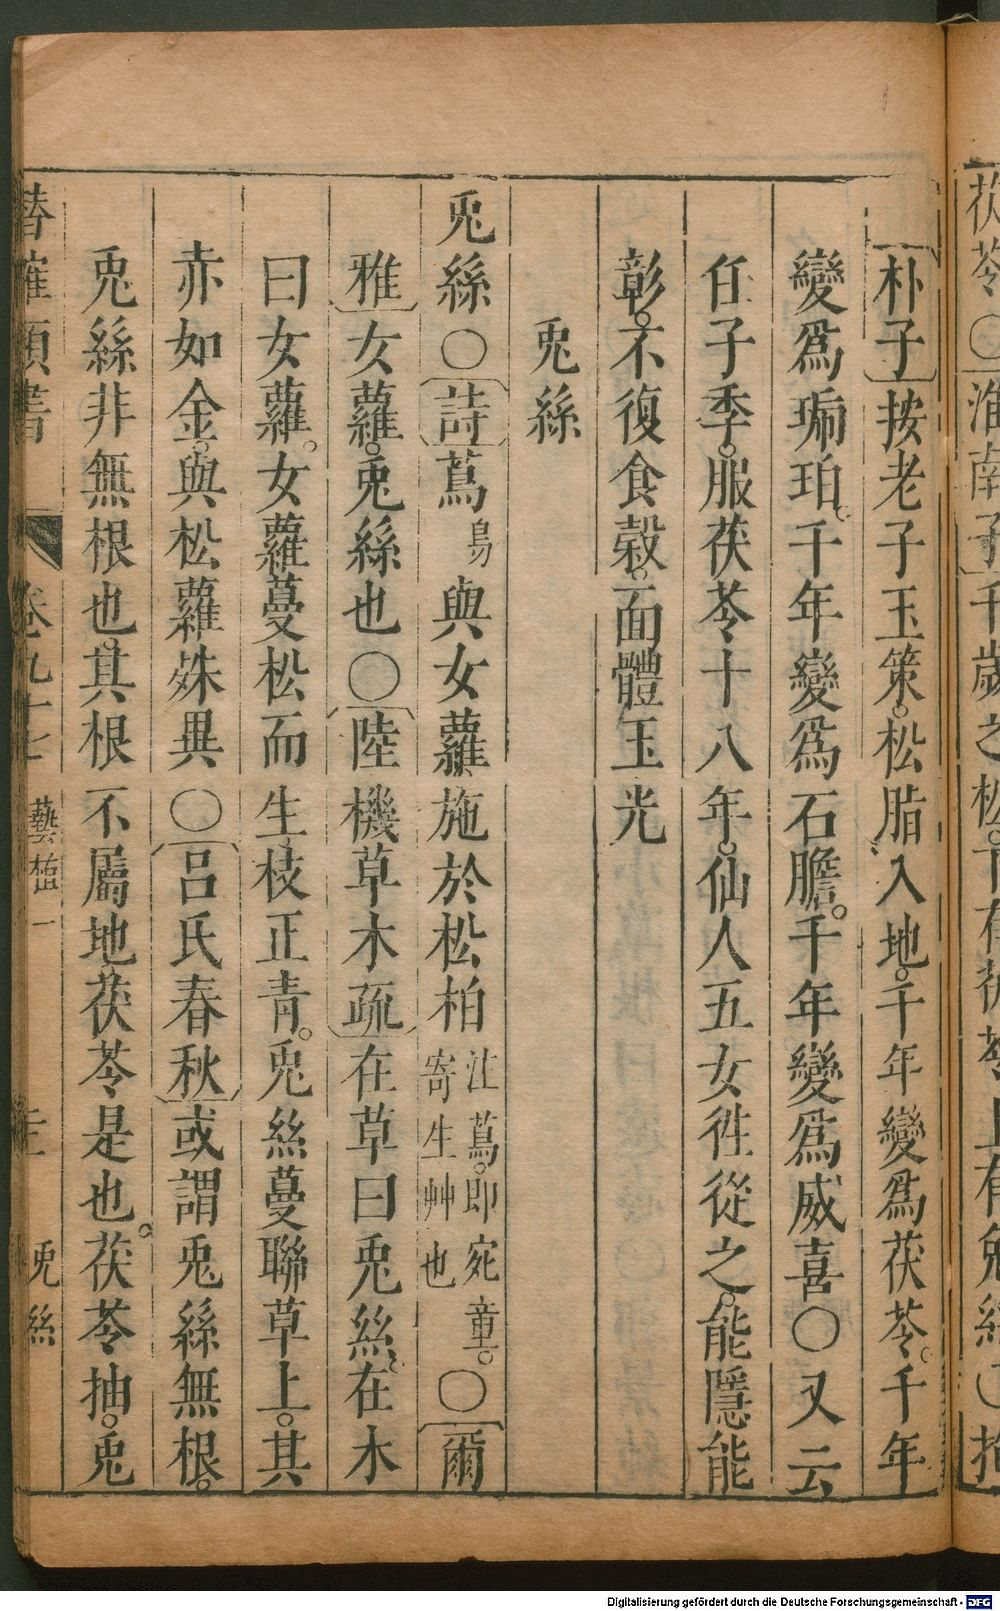 茯苓○淮南子千歲之松下有茯苓上有兔絲○抱
朴子按老子玉策。松脂入地。千年變爲茯苓。千年
變爲琥珀。千年變爲石膽。千年變爲威喜○又云
任子季。服茯苓十八年。仙人玉女徃從之。能隱能
彰。不復食穀。面體玉光
兎絲
兎絲○詩蔦鳥與女蘿施於松柏注蔦。即宛童。寄生艸也○爾
雅女蘿。兎絲也○陸機草木疏在草曰兎絲。在木
曰女蘿。女蘿蔓松而生。枝正青。兎絲蔓聯草上。其
赤如金。與松蘿殊異○呂氏春秋或謂兎絲無根。
兎絲非無根也。其根不屬地。茯苓是也。茯苓抽。兎
潛確類書 卷九十七 藝植一 兎絲
Digitalisierung gefördert durch die Deutsche Forschungsgemeinschaft - DFG